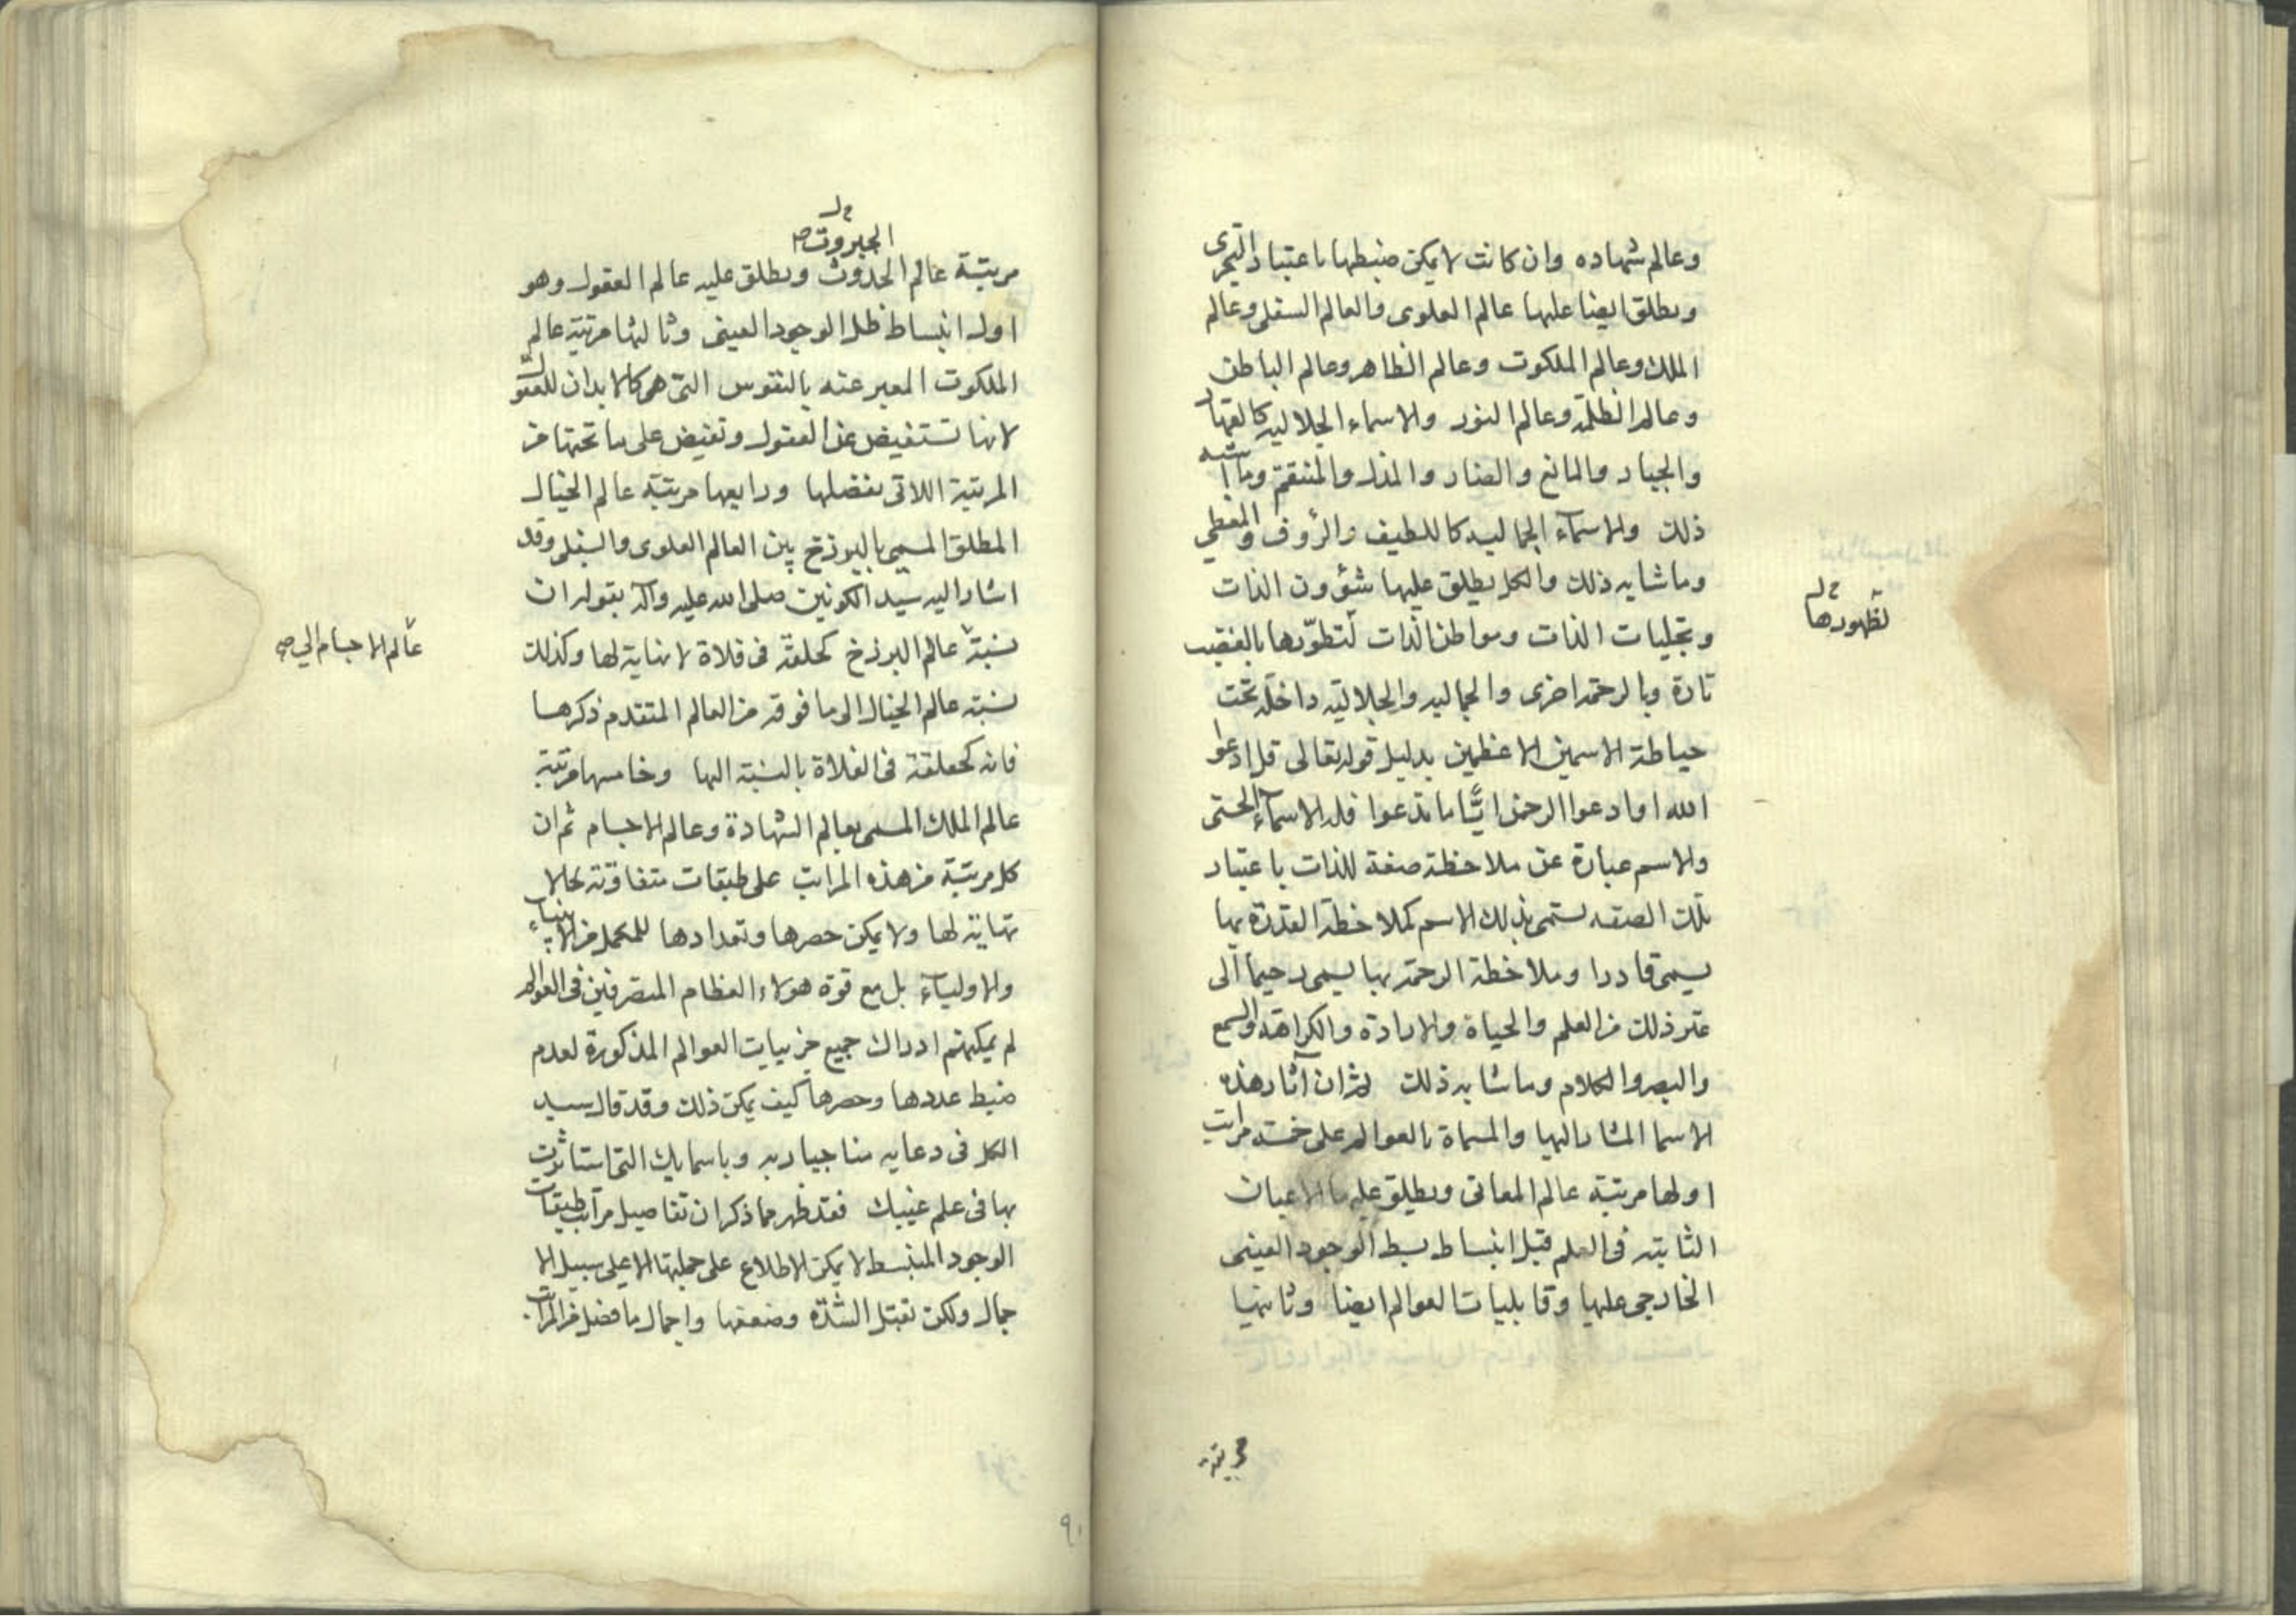 وعالم شهاده وان كانت لا يمكن ضبطها باعتبار التجزى
ويطلق ايضا عليها عالم العلوى والعالم السفلى وعالم
الملك وعالم الملكوت وعالم الظاهر وعالم الباطن
وعالم الظلمة وعالم النور والاسماء الجلاليه كالقهار
والجبار والمانع والضار والمذل والمنتقم وما اشبه
ذلك والاسمآء الجماليه كاللطيف والرؤف والمعطى
وما شابه ذلك والكل يطلق عليها شئؤون الذات
وتجليات الذات ومواطن الذات لتطوّرها بالغضب
لظهورها
تارة وبالرحمة اخرى والجماليه والجلاليّه داخله تحت
حياطة الاسمين الاعظمين بدليل قوله تعالى قل ادعوا
الله او ادعوا الرحمن ايًّا ما تدعوا فله الاسمآء الحسنى
والاسم عبارة عن ملاحظة صفة للذات باعتبار
تلك الصفه تسمى بذلك الاسم كملاحظة القدرة بها
يسمى قادرا وملاحظة الرحمة بها يسمى رحيما الى
غير ذلك من العلم والحياة والارادة والكراهة والسمع
والبصر والكلام وما شابه ذلك ثم ان آثار هذه
الاسما المشار اليها والمسماة بالعوالم على خمسة مراتب
اولها مرتبة عالم المعانى ويطلق عليه بالاعيان
الثابته فى العلم قبل انبساط بسط الوجود العينى
الخارجى عليها وقابليات العوالم ايضا وثانيها
مرتبة
الجبروت
مرتبة عالم الحدوث ويطلق عليه عالم العقول وهو
اول انبساط ظل الوجود العينى وثالثها مرتبة عالم
الملكوت المعبر عنه بالنفوس التى هى كالابدان للعقول
لانها تستفيض من العقول وتفيض على ما تحتها من
المرتبة اللاتى بفضلها ورابعها مرتبة عالم الخيال
المطلق المسمى بالبرزخ بين العالم العلوى والسفلى وقد
اشار اليه سيّد الكونين صلى الله عليه وآله بقوله ان
نسبة عالم البرزخ كحلقة فى فلاة لا نهاية لها وكذلك
عالم الاجسام الى
نسبة عالم الخيال الى ما فوقه من العالم المتقدم ذكرها
فانه كحلقة فى الفلاة بالنسبة اليها وخامسها مرتبة
عالم الملك المسمى بعالم الشهادة وعالم الاجسام ثم ان
كل مرتبة من هذه المراتب على طبقات متفاوتة بحالا
نهاية لها ولا يمكن حصرها وتعدادها للمكمل من الانبياء
والاوليآء بل مع قوة هؤلاء العظام المتصرفين فى العوالم
لم يمكنهم ادراك جميع جزييات العوالم المذكورة لعدم
ضبط عددها وحصرها كيف يمكن ذلك وقد قال سيد
الكل فى دعايه مناجيا ربه وباسمايك التى استاثرت
بها فى علم غيبك فقد ظهر مما ذكر ان تفاصيل مراتب طبقات
الوجود المنبسط لا يمكن الاطلاع على جملتها الا على سبيل الا
جمال ولكن تقبل الشدّه وضعفها واجمال ما فضل من المراتب
٩١